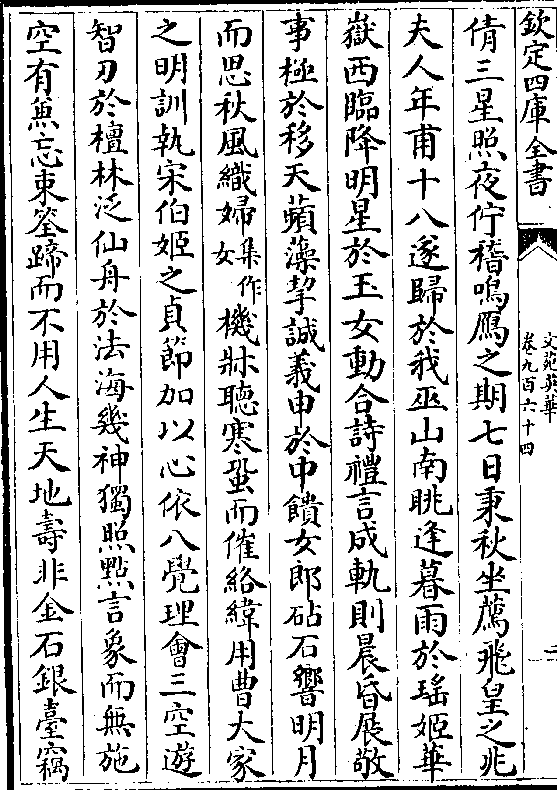 欽定四庫全書
文苑英華
卷九百六十四
二
倩三星照夜佇稽鳴鴈之期七日秉秋坐薦飛皇之兆
夫人年甫十八遂歸於我巫山南眺逢暮雨於瑤姬華
嶽西臨降明星於玉女動合詩禮言成軌則晨昏展敬
事極於移天蘋藻挈誠義申於中饋女郎砧石響明月
而思秋風織婦集作女機牀聽寒蛩而催絡緯用曹大家
之明訓執宋伯姬之貞節加以心依八覺理會三空遊
智刃於檀林泛仙舟於法海幾神獨照黙言象而無施
空有兼忘束筌蹄而不用人生天地壽非金石銀臺竊